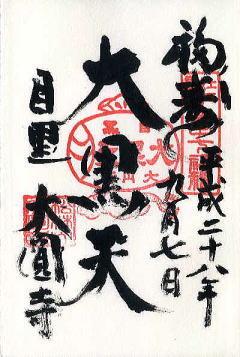 福寿
平成二十八年
九月七日
大黒天
目黒
大圓寺